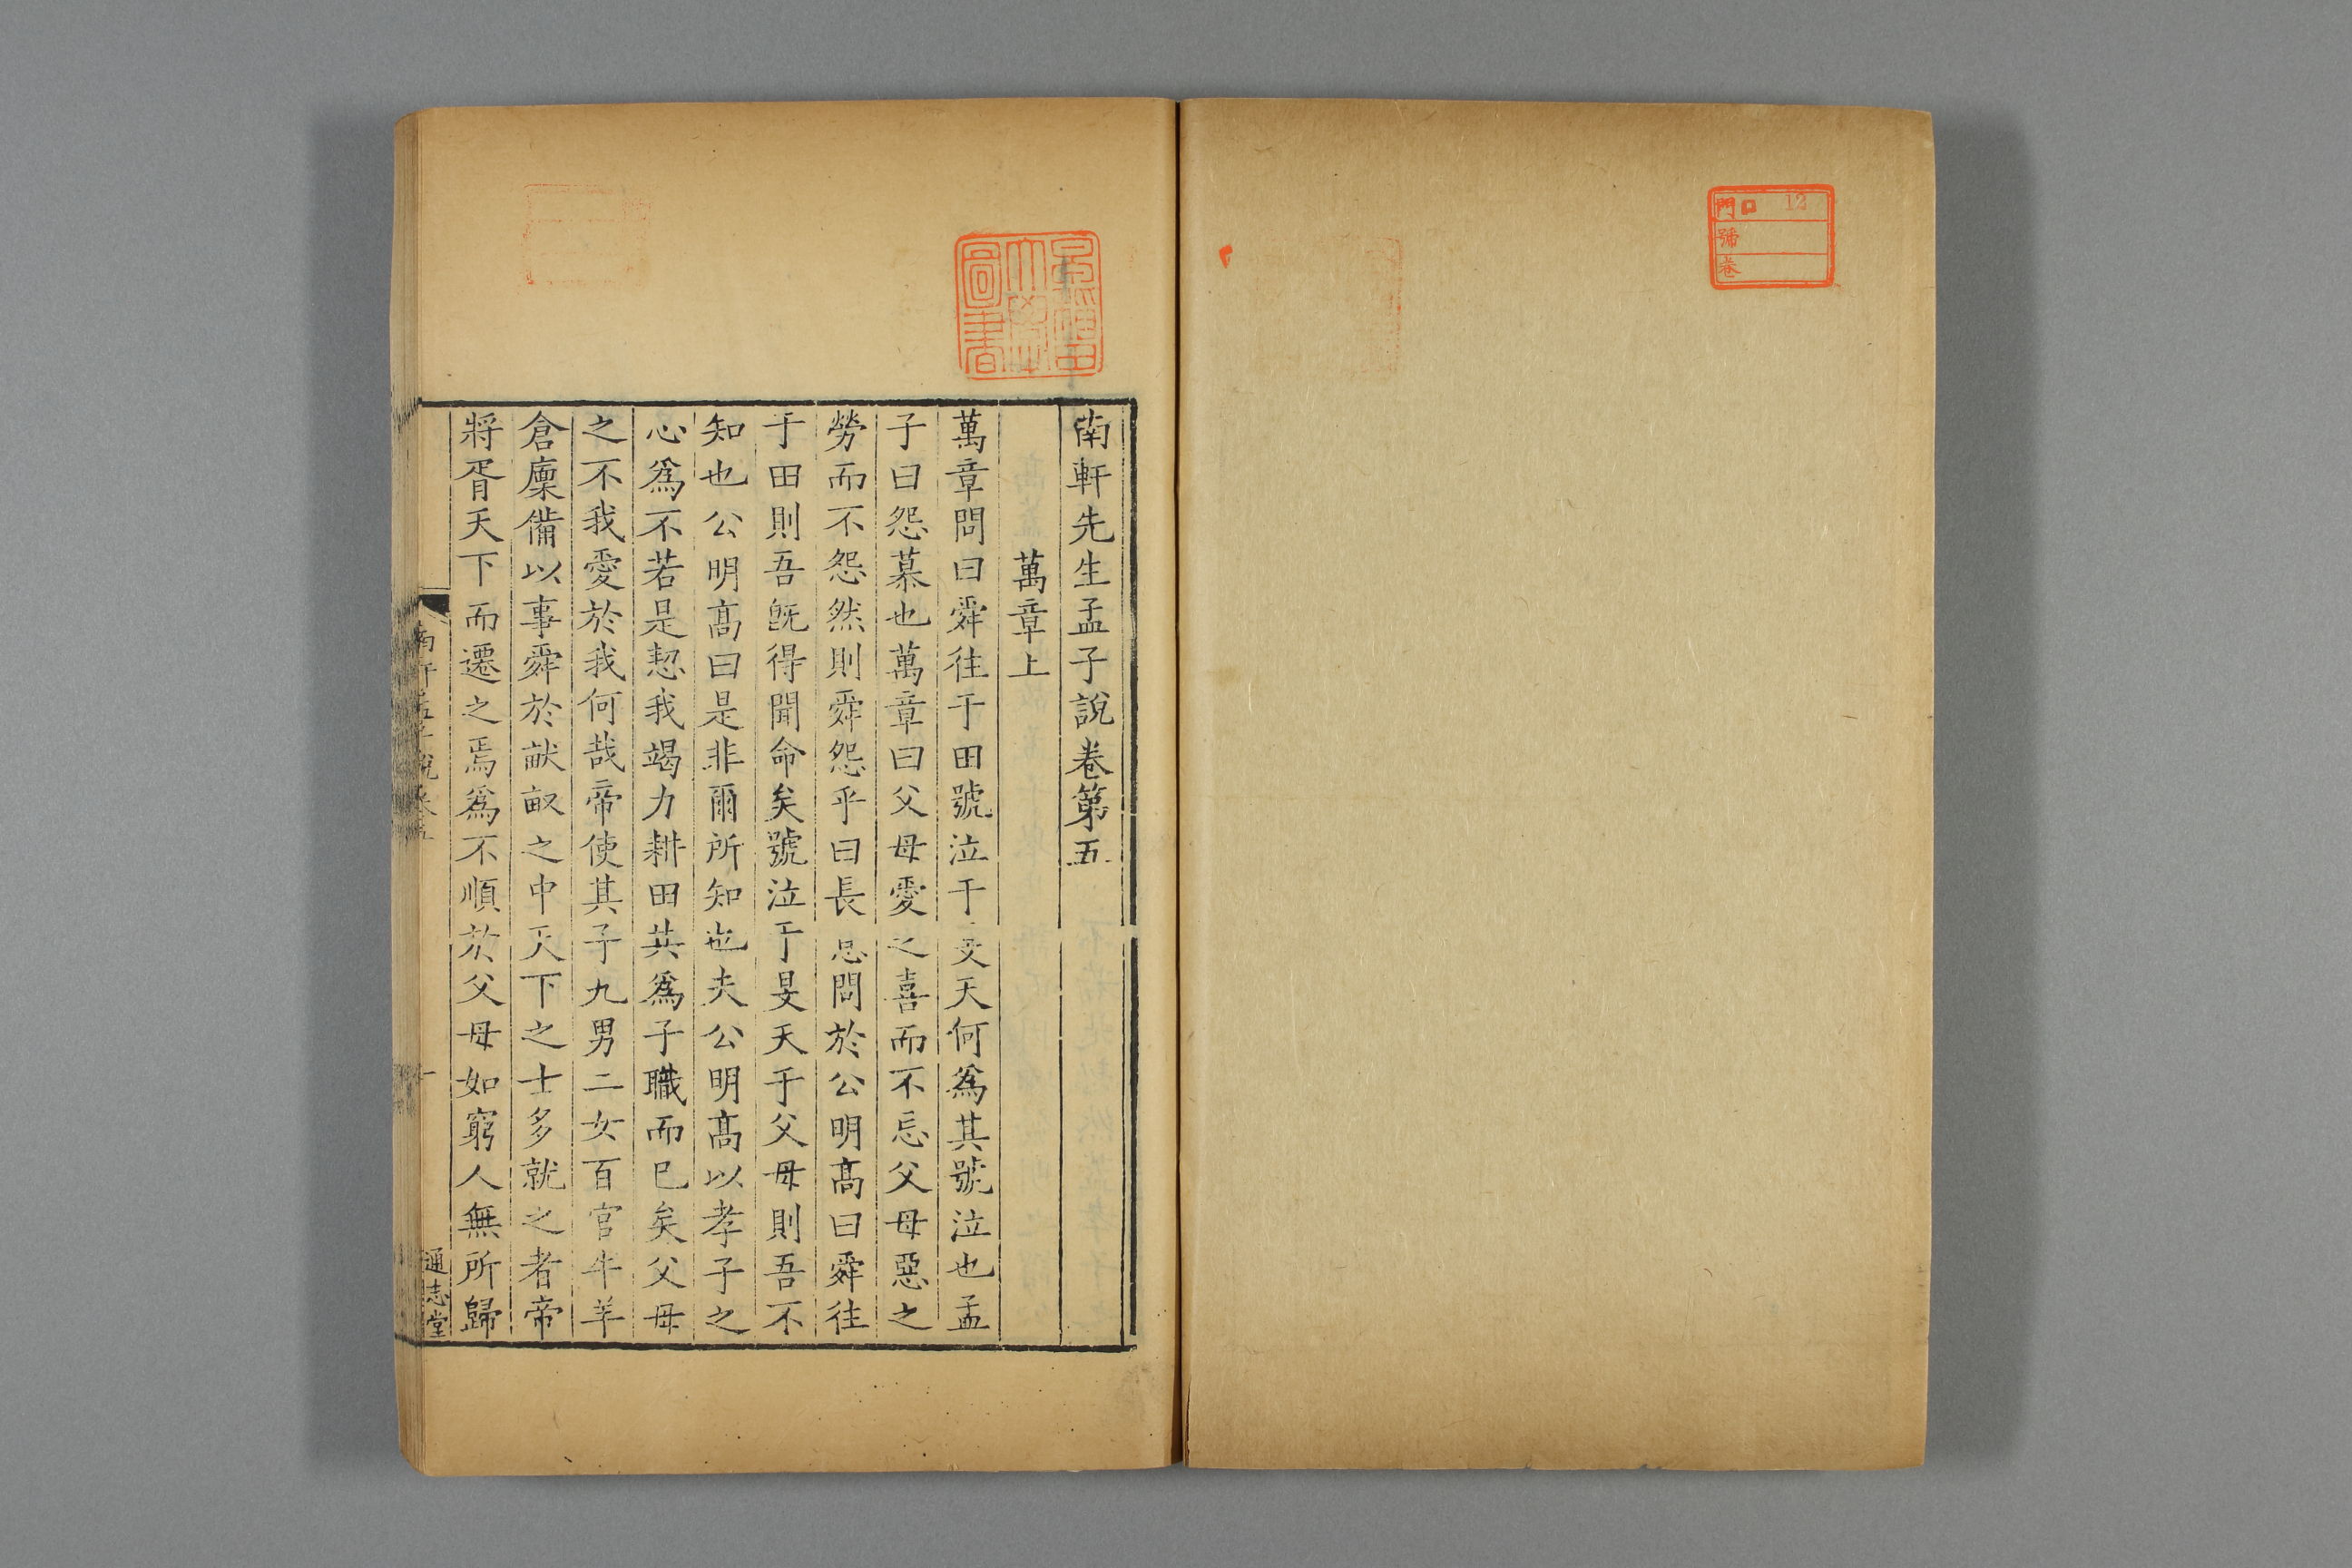 門 12
號
卷
南軒先生孟子說卷第五
萬章上
萬章問曰舜往于田號泣于旻天何爲其號泣也孟
子曰怨慕也萬章曰父母愛之喜而不忘父母惡之
勞而不怨然則舜怨乎曰長息問於公明髙曰舜往
于田則吾旣得聞命矣號泣于旻天于父母則吾不
知也公明髙曰是非爾所知也夫公明髙以孝子之
心爲不若是恝我竭力耕田共爲子職而已矣父母
之不我愛於我何哉帝使其子九男二女百官牛羊
倉廩備以事舜於畎畝之中天下之士多就之者帝
將胥天下而遷之焉爲不順於父母如窮人無所歸
南軒孟子說卷五
一
通志堂